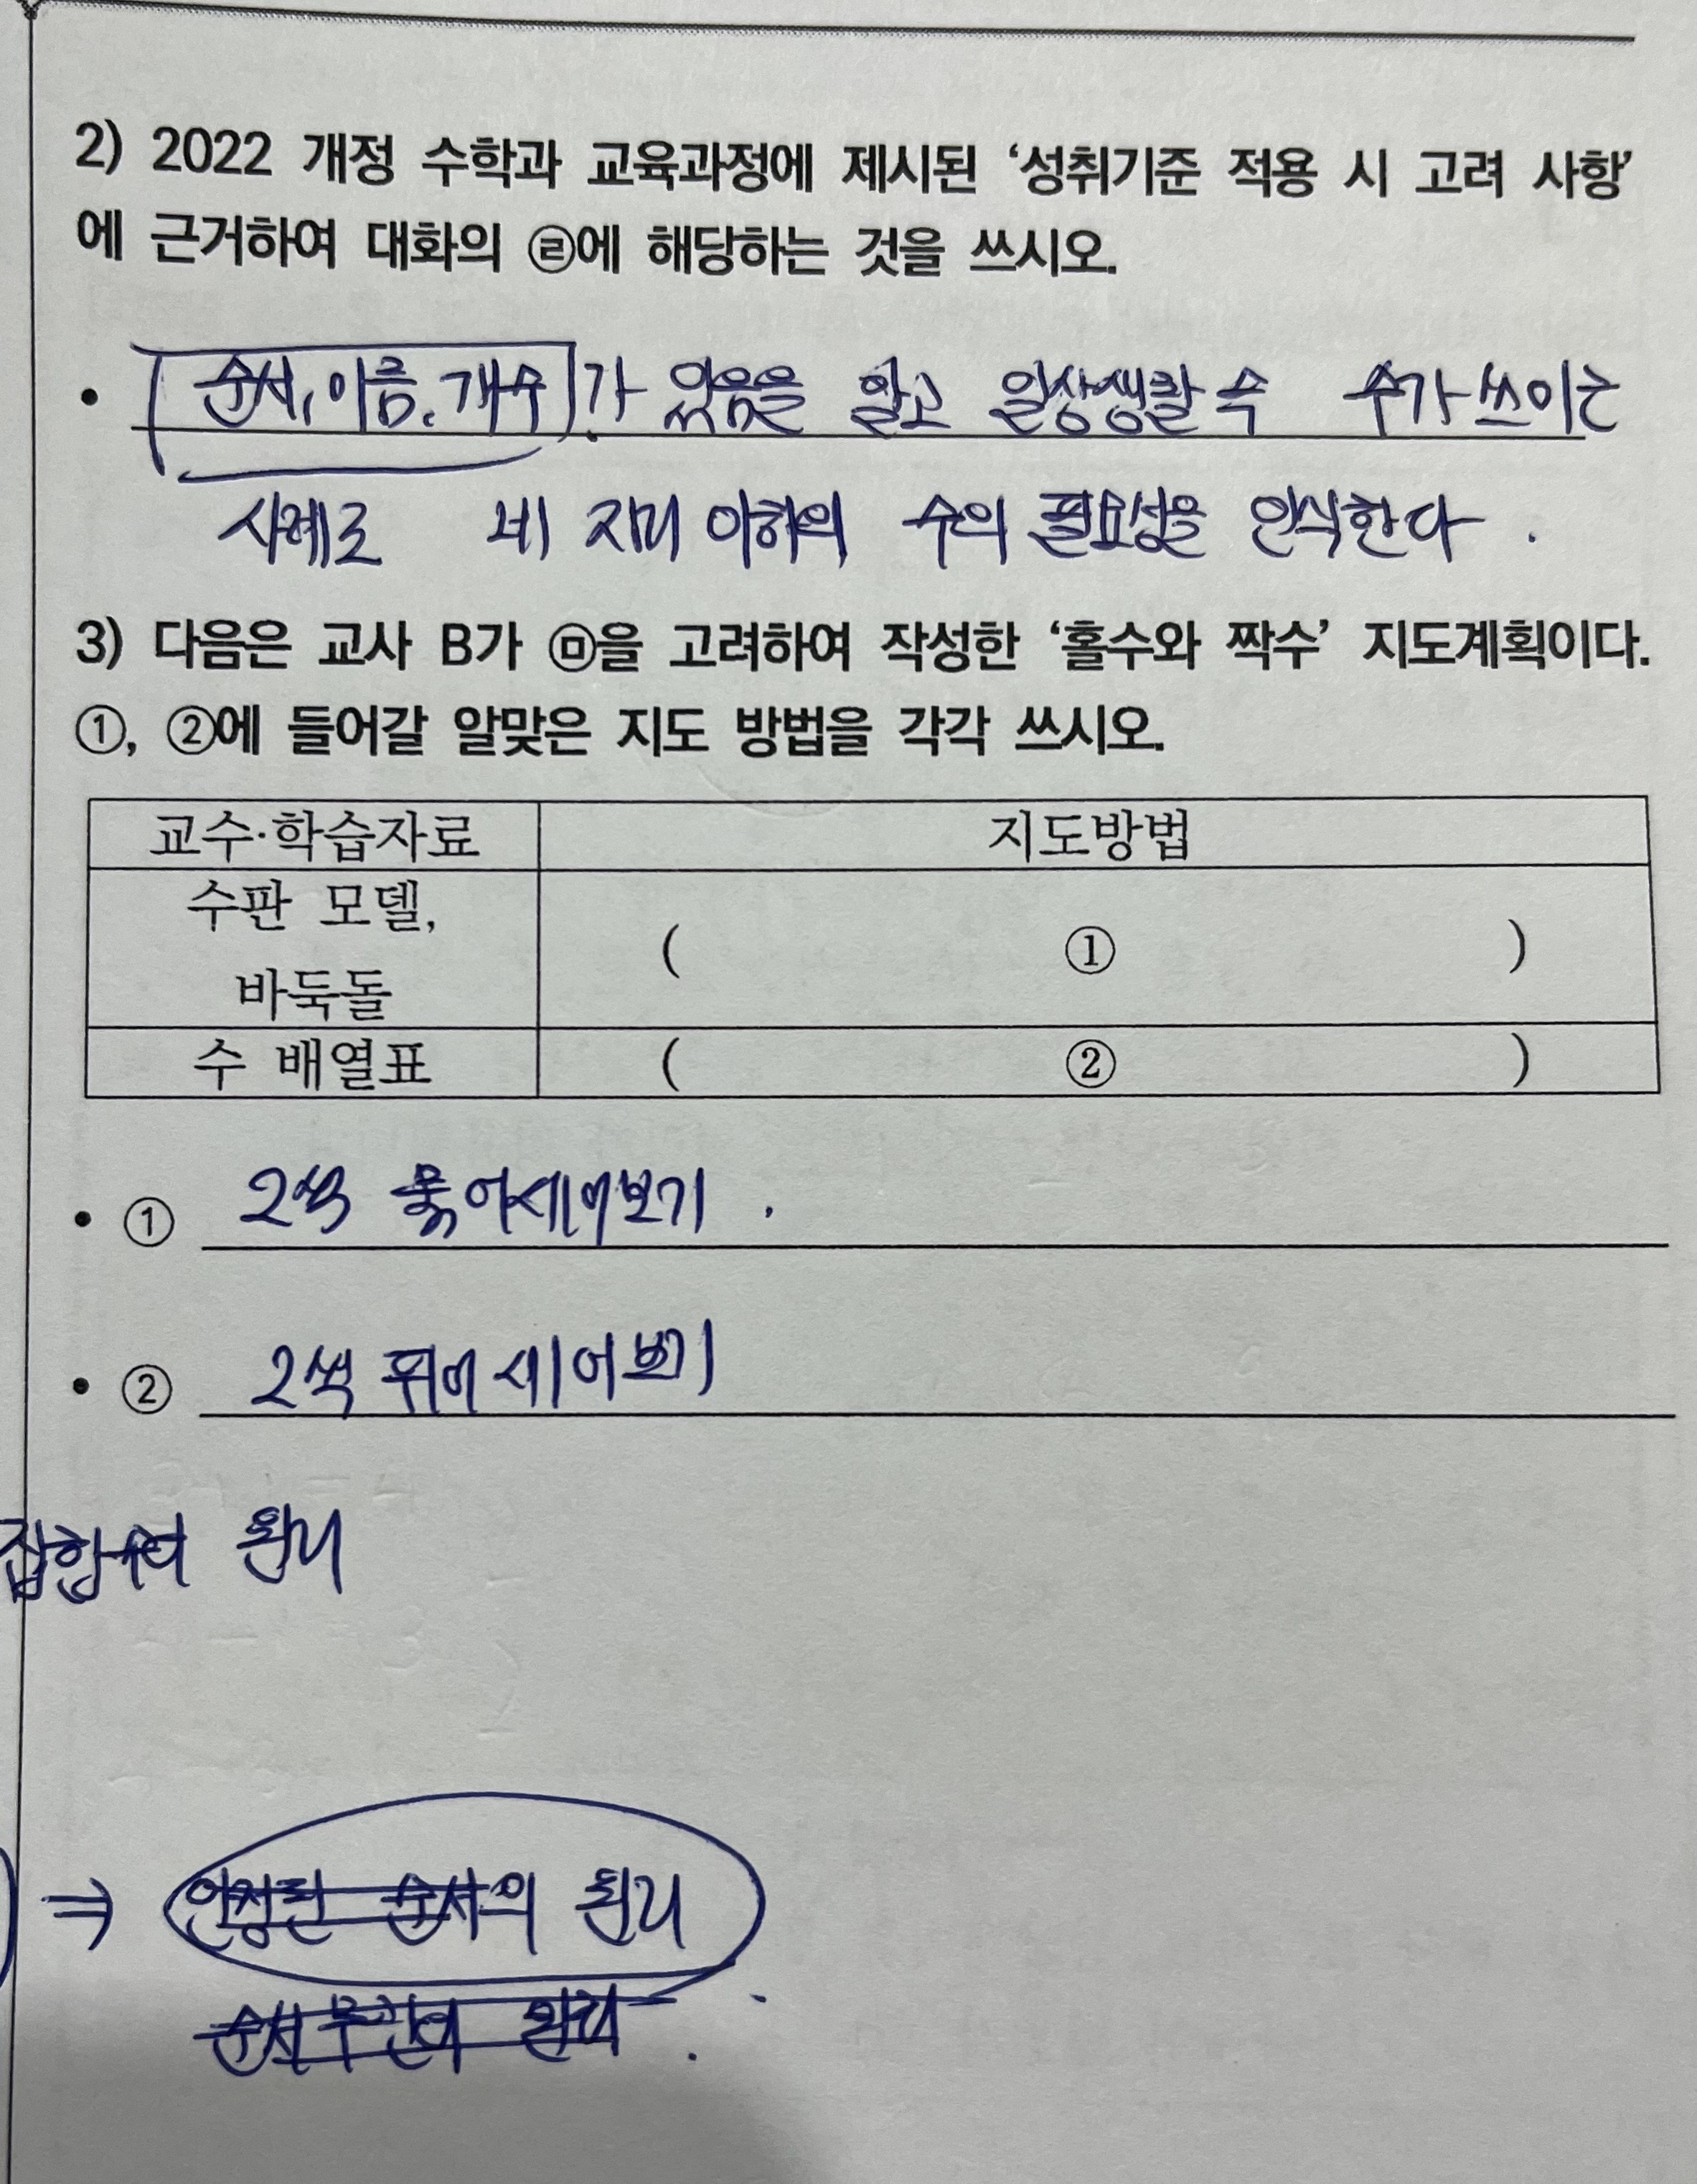 2) 2022 개정 수학과 교육과정에 제시된 ‘성취기준 적용 시 고려 사항’
에 근거하여 대화의 ㉣에 해당하는 것을 쓰시오.
• 순서, 이름, 개수가 있음을 알고 일상생활 속 수가 쓰이는
사례로 네 자리 이하의 수의 필요성을 인식한다.
3) 다음은 교사 B가 ㉤을 고려하여 작성한 ‘홀수와 짝수’ 지도계획이다.
①, ②에 들어갈 알맞은 지도 방법을 각각 쓰시오.
교수·학습자료 지도방법
수판 모델,
바둑돌 ( ① )
수 배열표 ( ② )
• ① 2씩 묶어세어보기.
• ② 2씩 뛰어 세어보기
원리
⇒ 안정된 순서의 원리
순서무관의 원리.